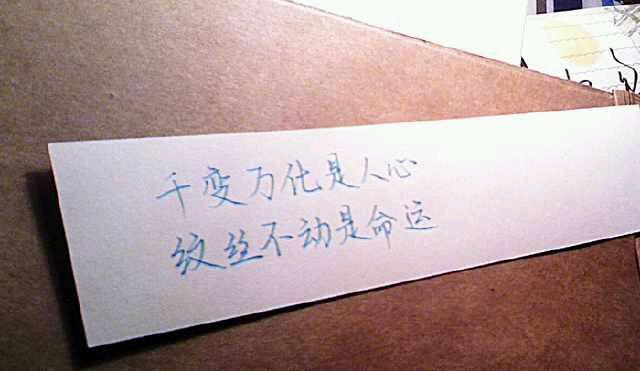 千变万化是人心
纹丝不动是命运